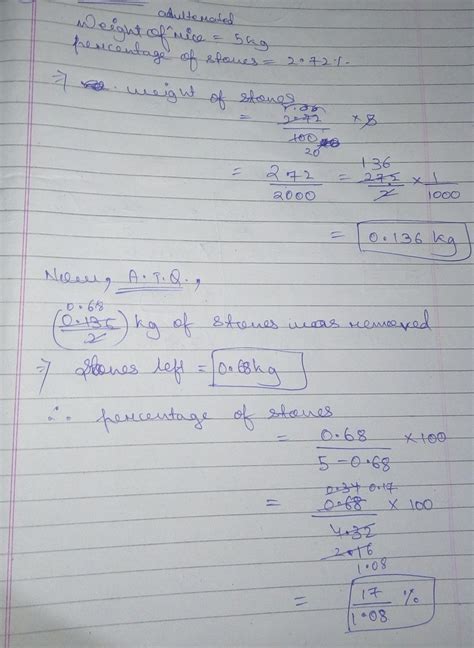 adulterated
Weight of rice = 5kg
percentage of stones = 2.72%
⇒ weight of stones
= 2.72/100 × 5
20
= 272/2000 = 272/2 × 1/1000
136
= 0.136 kg
Now, A.T.Q.,
0.68
(0.136/2) kg of stones was removed
⇒ Stones left = 0.68kg
∴ percentage of stones
= 0.68/5-0.68 × 100
0.34 0.17
= 0.68/4.32 × 100
2.16
1.08
= 17/1.08 %